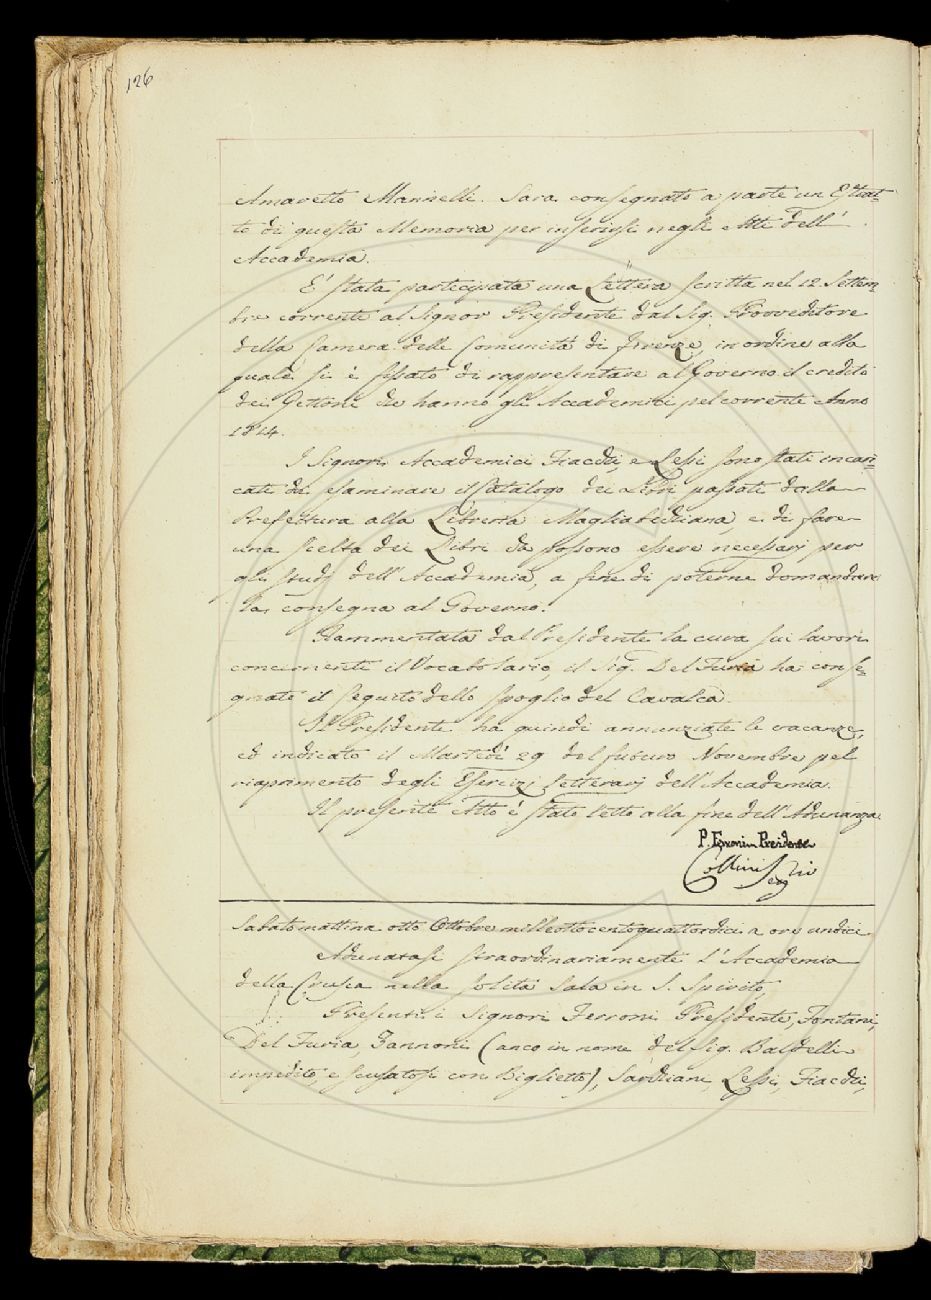 126
Amaretto Mannelli. Sarà consegnato a parte un Estrat=
to di questa Memoria per inserirsi negli Atti dell'
Accademia.
E' stata partecipata una Lettera scritta nel 12 Settem=
bre corrente al Signor Presidente dal Sig. Provveditore
della Camera delle Comunità di Firenze, in ordine alla
quale si è fissato di rappresentare al Governo il credito
dei Gettoni che hanno gli Accademici pel corrente Anno
1814.
I Signori Accademici Fiacchi, e Lessi sono stati incari=
cati di esaminare il Catalogo dei Libri passati dalla
Prefettura alla Libreria Magliabechiana, e di fare
una scelta dei Libri che possono essere necessarj per
gli studj dell'Accademia, a fine di poterne domandare
la consegna al Governo.
Rammentata dal Presidente la cura sui lavori
concernenti il Vocabolario, il Sig. Del Furia ha conse=
gnato il seguito dello spoglio del Cavalca.
Il Presidente ha quindi annunziate le vacanze,
ed indicato il Martedì 29 del futuro Novembre pel
riaprimento degli Esercizj Letterarj dell'Accademia.
Il presente Atto è stato letto alla fine dell'Adunanza.
P. Ferroni Presidente
Collini Seg.rio
Sabato mattina otto Ottobre milleottocentoquattordici a ore undici
Adunatasi straordinariamente l'Accademia
della Crusca nella solita Sala in S. Spirito,
Presenti i Signori Ferroni Presidente, Fontani,
Del Furia, Zannoni (anco in nome del Sig. Baldelli
impedito, e scusatosi con Biglietto), Sarchiani, Lessi, Fiacchi,